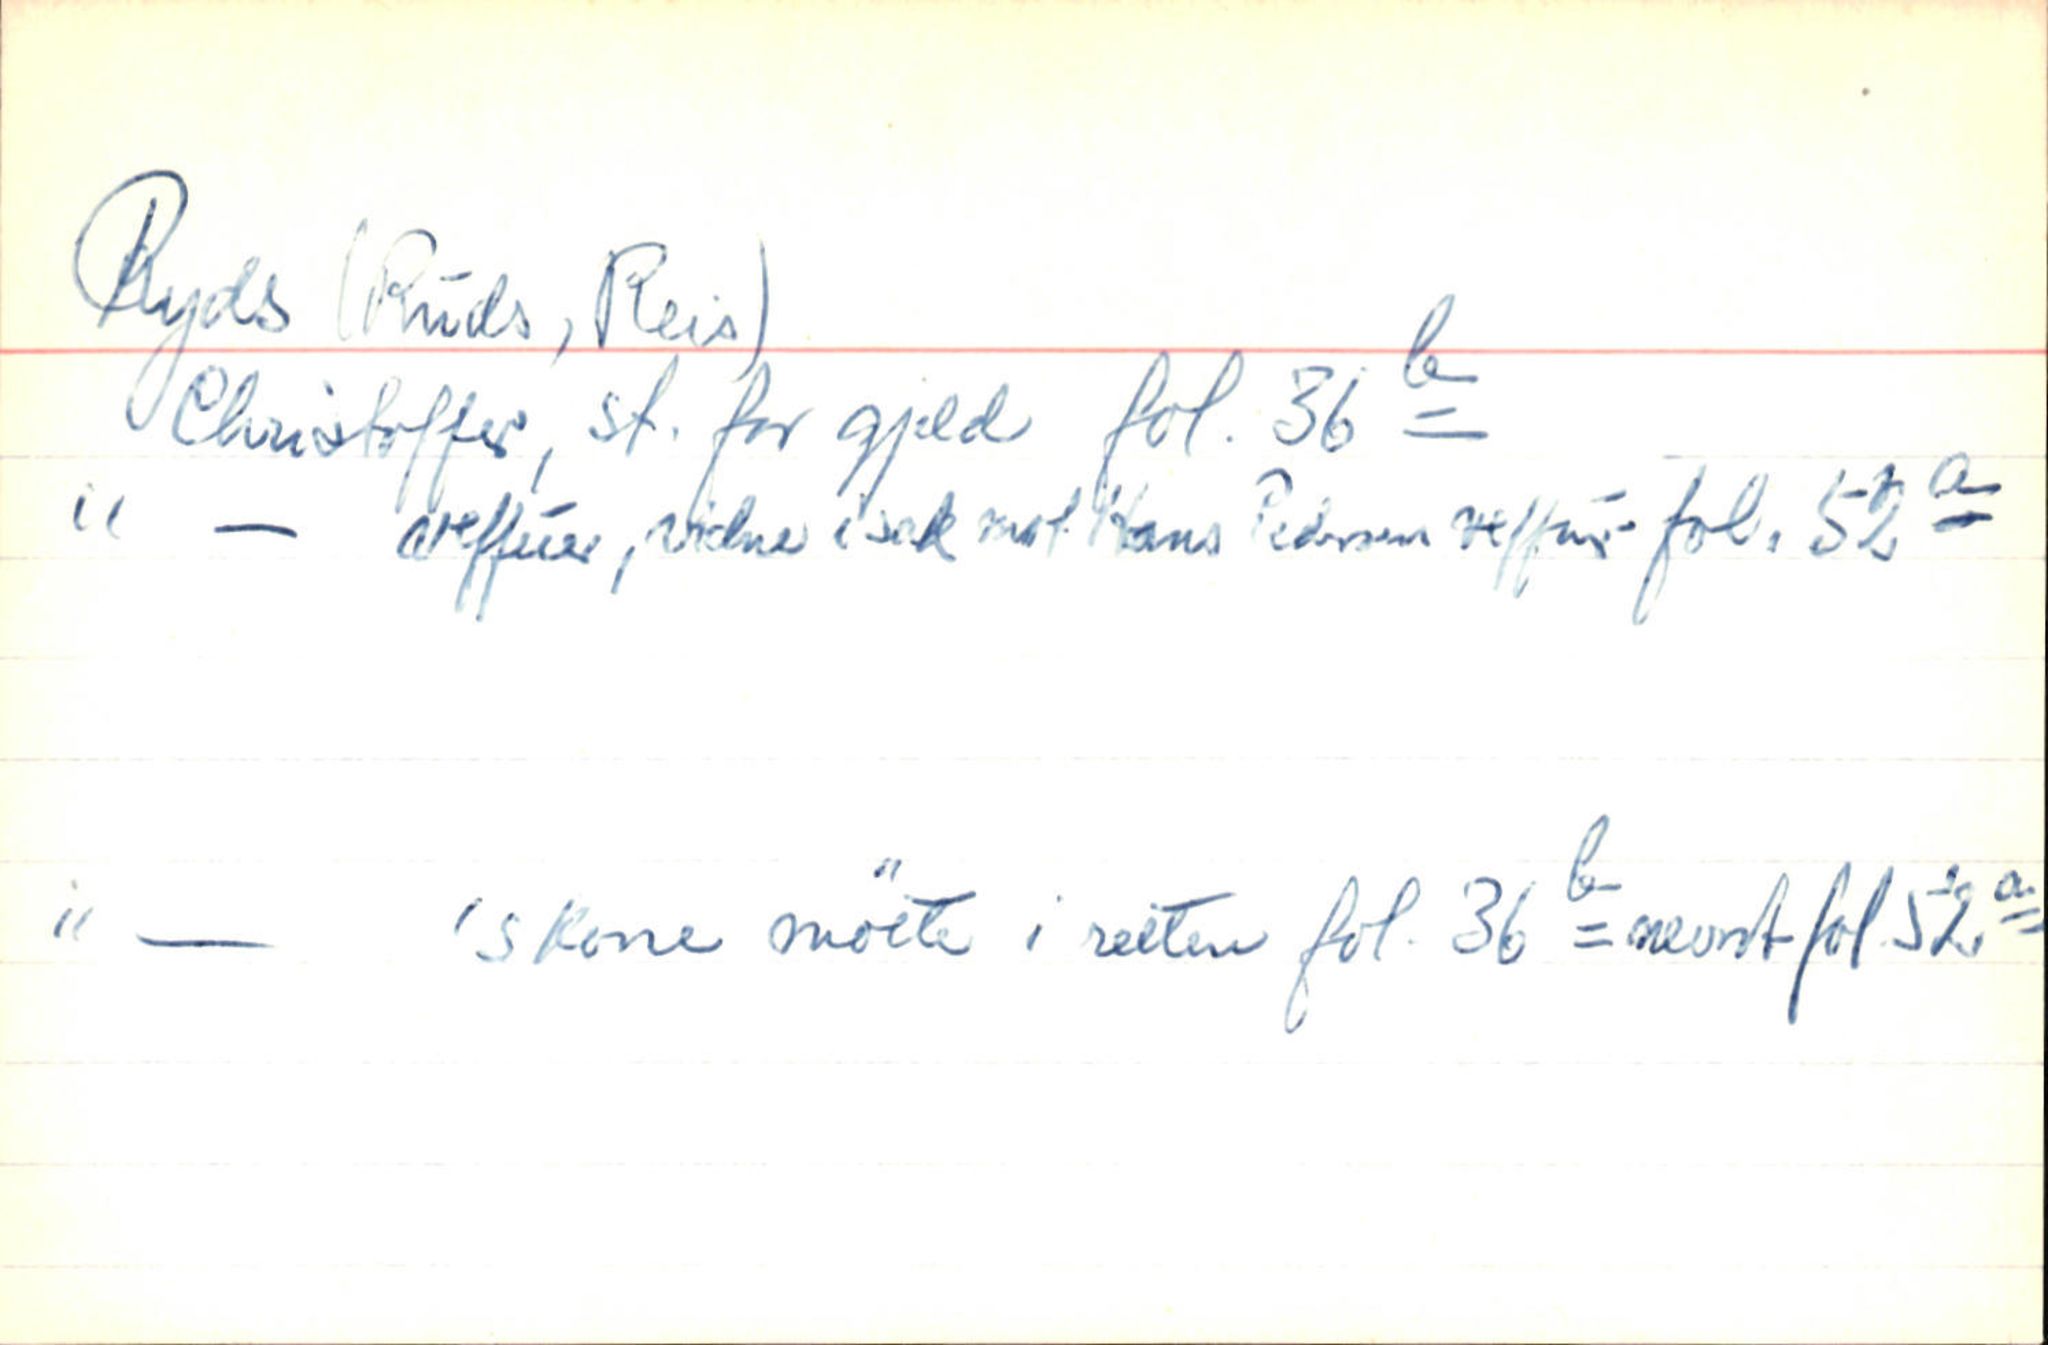 Ryds (Rūds, Reis)
Christoffer, st. for gjeld fol. 36 b
" — vidne i sak mot Hans Pedersen fol. 52 a
" — 's kone möte i retten fol. 36 b nevnt fol. 52 a